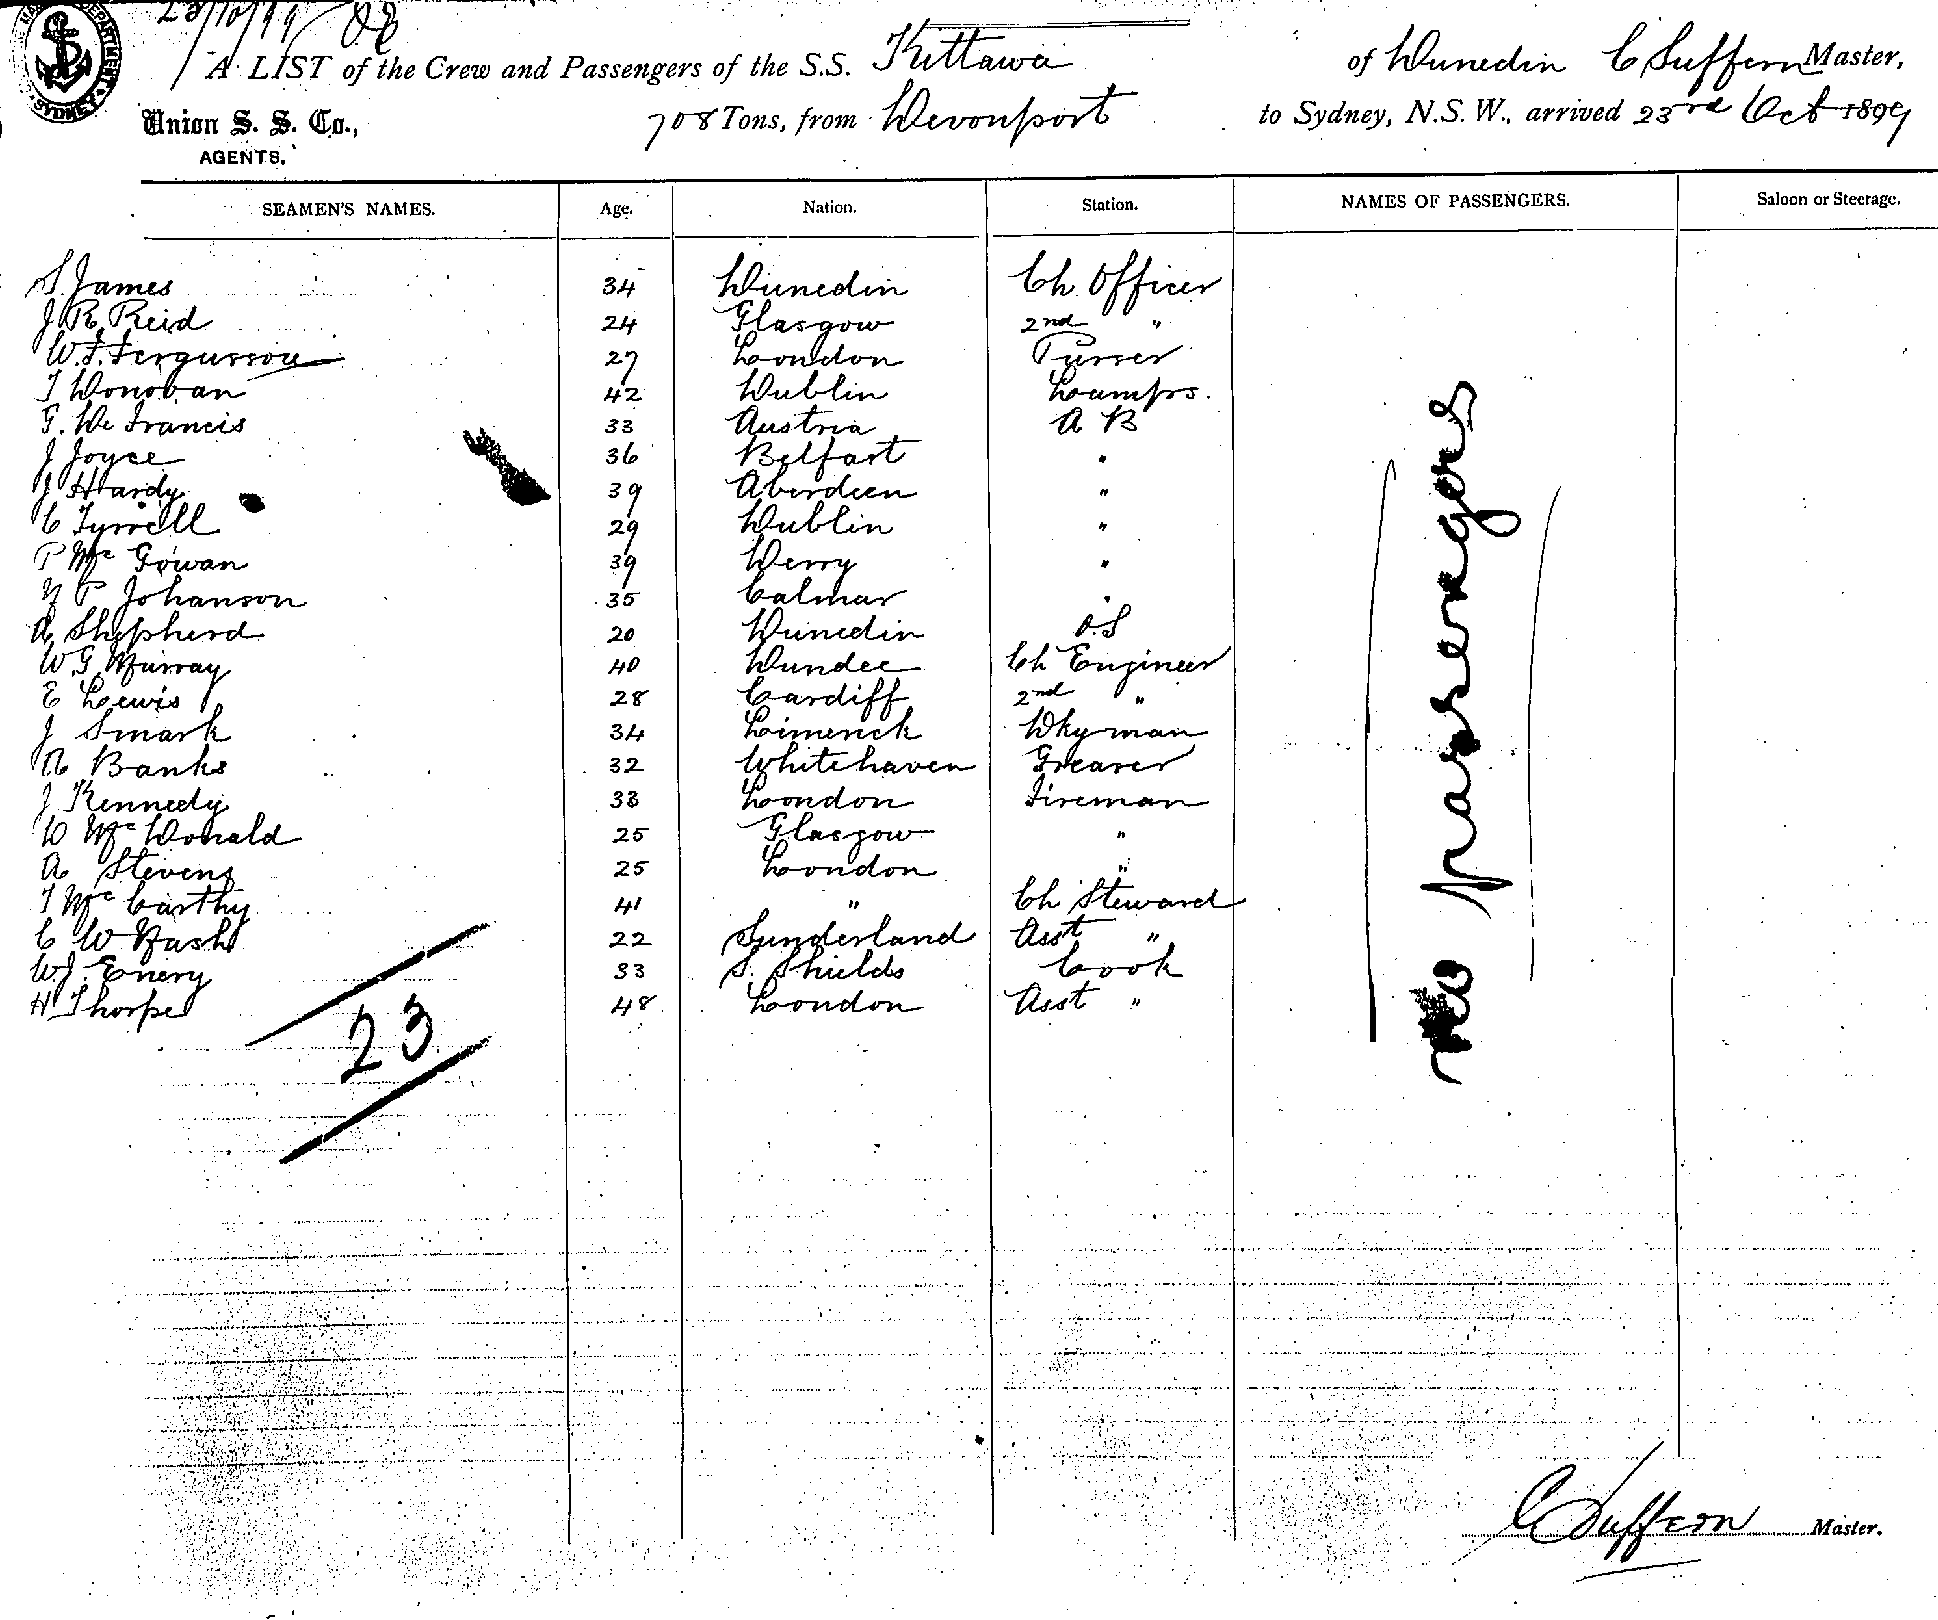 23/10/99
A LIST of the Crew and Passengers of the S.S. Kittawa of Dunedin C Suffern Master,
Union S. S. Co., 708 Tons, from Devonport to Sydney, N.S.W., arrived 23rd Oct 1899
AGENTS.
SEAMEN'S NAMES. Age. Nation. Station. NAMES OF PASSENGERS. Saloon or Steerage.
S James 34 Dunedin Ch Officer
J R Reid 24 Glasgow 2nd "
W. F. Fergusson 27 London Purser
T Donovan 42 Dublin Lamps.
F. De Francis 33 Austria A B
J Joyce 36 Belfast "
J Hardy 39 Aberdeen "
C Tyrrell 29 Dublin "
P Mc Gowan 39 Derry "
N P Johanson 35 Calmar "
A Shepherd 20 Dunedin O.S
W G Murray 40 Dundee Ch Engineer
E Lewis 28 Cardiff 2nd "
J Smark 34 Limerick Dkyman
A Banks 32 Whitehaven Greaser
J Kennedy 33 London Fireman
D Mc Donald 25 Glasgow "
A Stevens 25 London "
T Mc Carthy 41 " Ch Steward
C W Nash 22 Sunderland Asst "
W.J. Emery 33 S. Shields Cook
H Thorpe 48 London Asst "
23
no passengers
C Suffern Master.